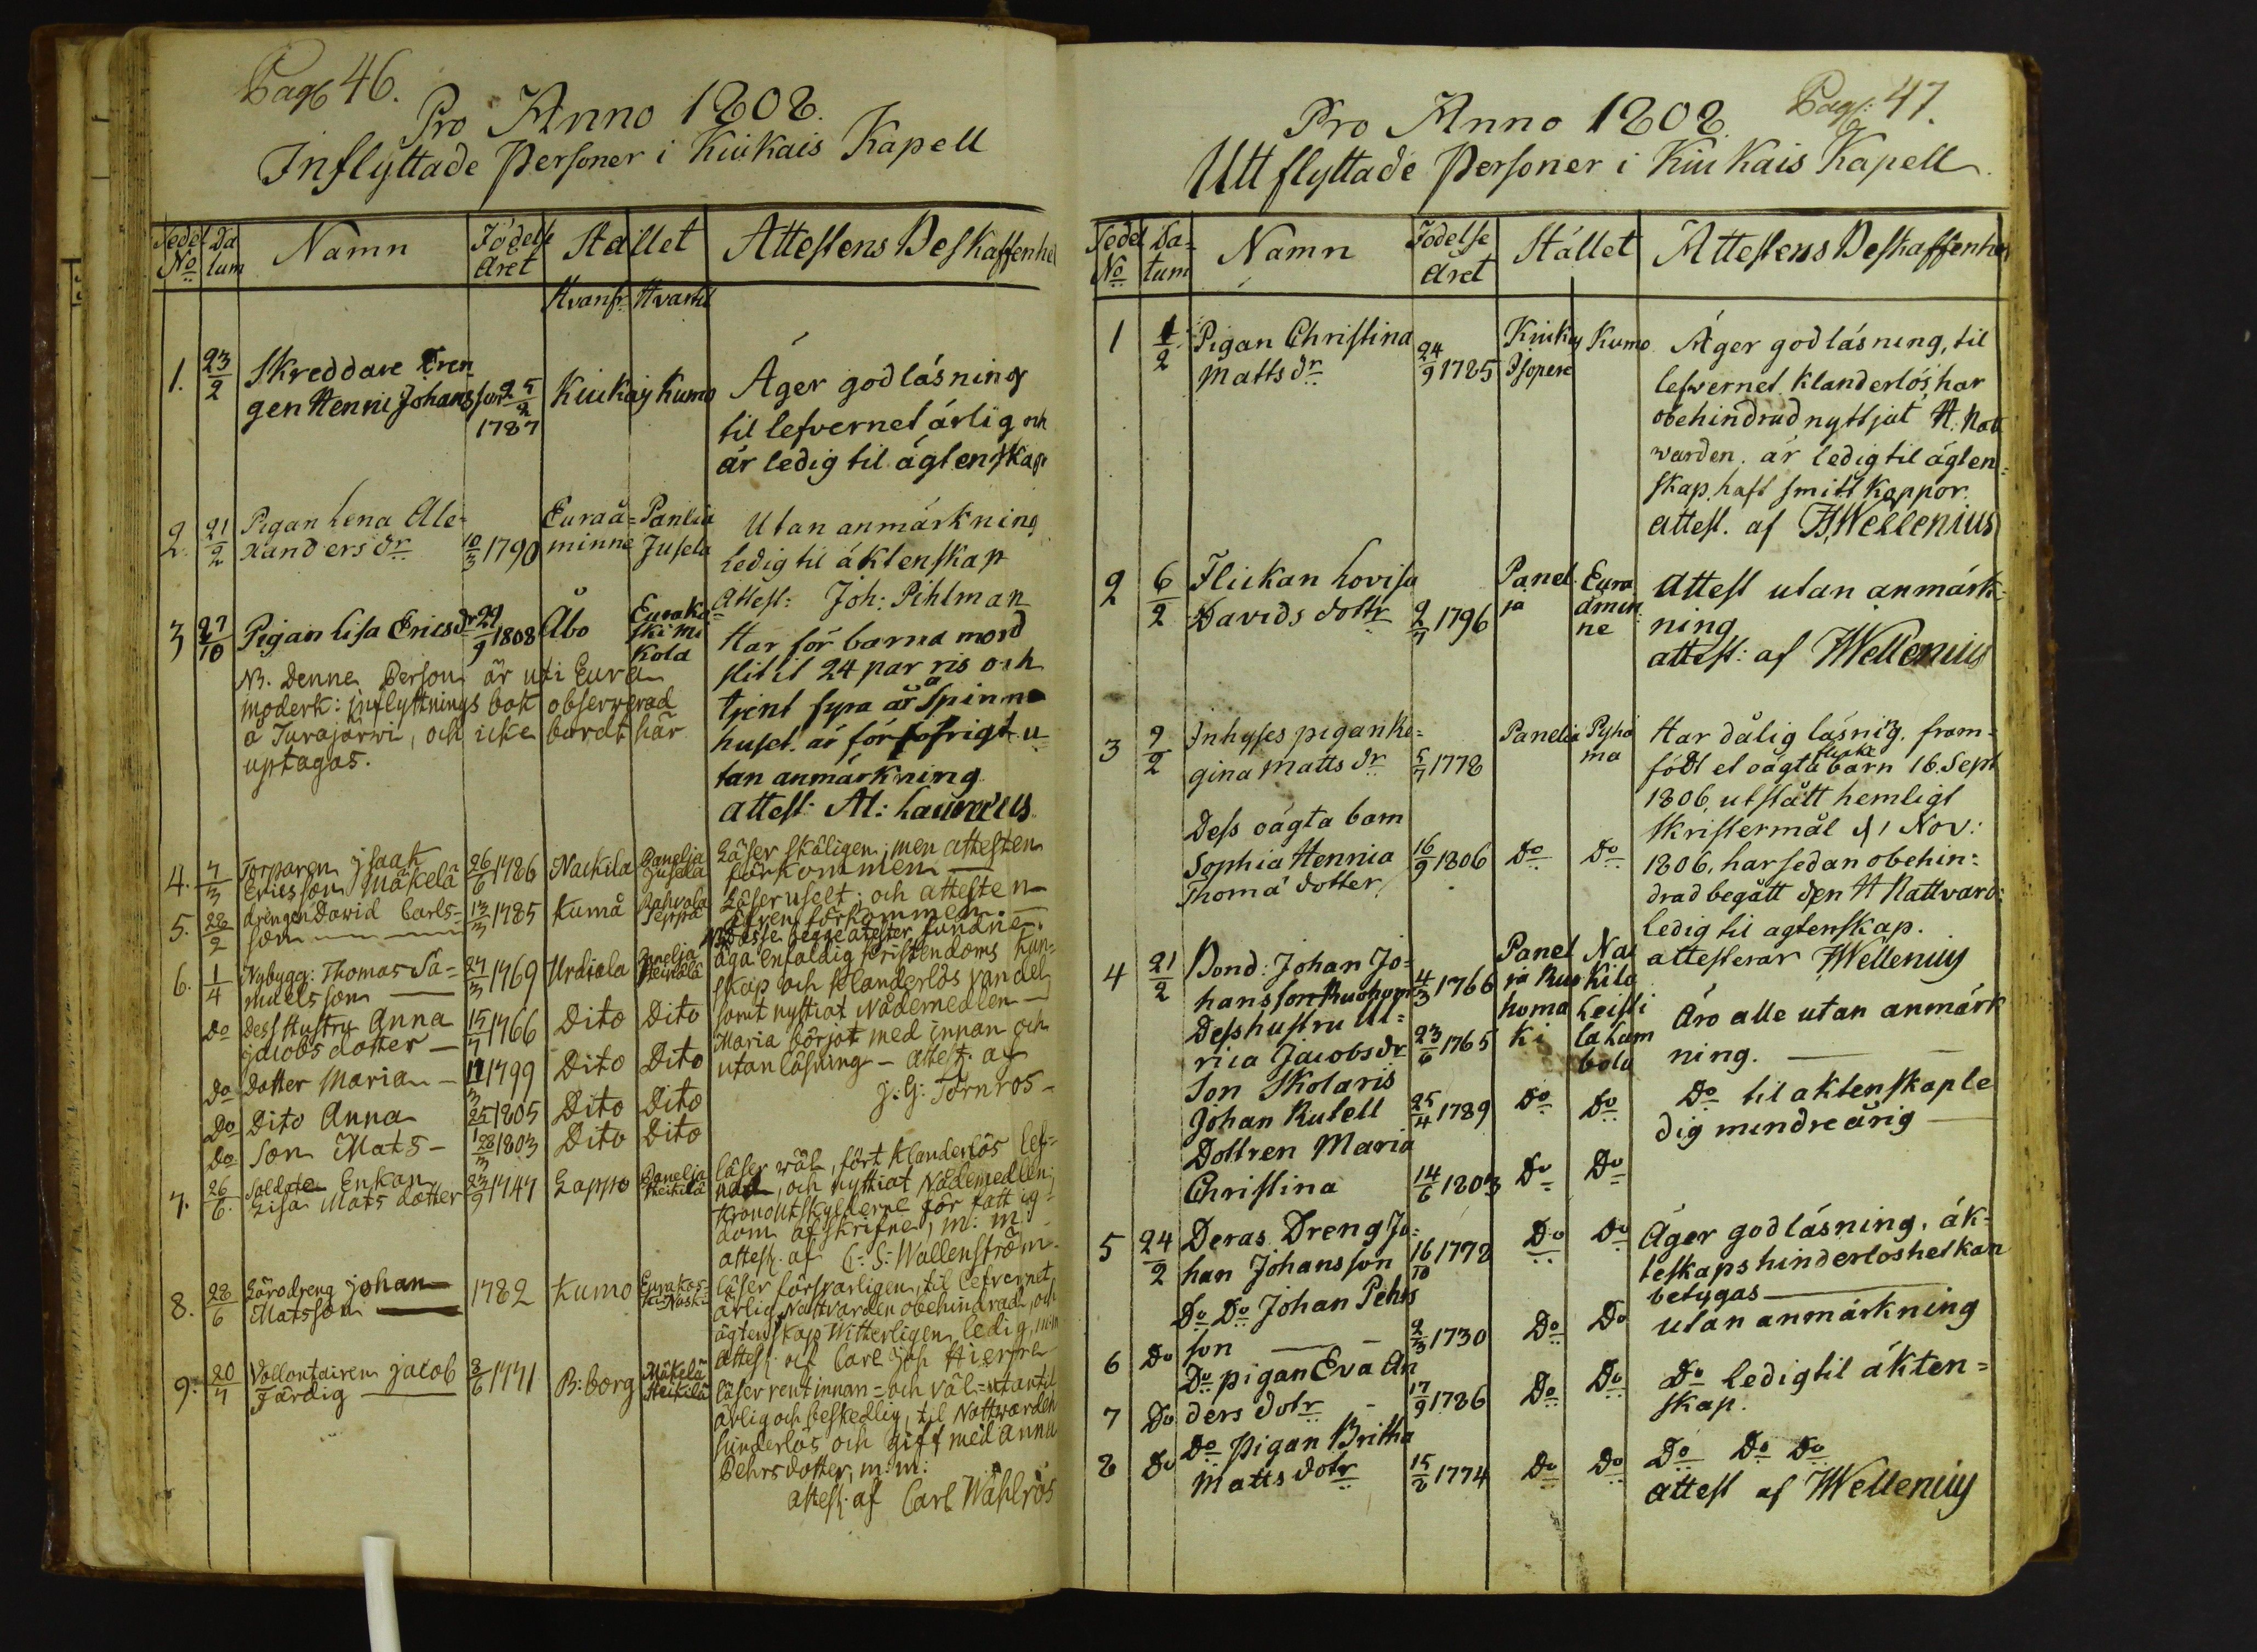 Pag 46.
Pro Anno 1808.
Inflyttade Personer i Kiukais Kapell
Sedel No
Datum
Namn
Födelse året
Stället
Attestens Beskaffenhe
Hvanfr: Hvartil
1. 23/2 Skreddare Dren
gen Henric Johansson 25/2 1787 Kiukais Kumo
Äger god läsning
til lefvernet ärlig och
är ledig til ägtenskap
2. 21/2 Pigan Lena Ale=
xanders dr 10/3 1790 Euraå=minne Panlia Jusela
Utan anmärkning
ledig til äktenskap
Attest: Joh: Pihlman
3 27/10 Pigan Lisa Erics dr 29/9 1808 Åbo Eurakoski Mi kola
NB. Denne Person är uti Eura
moderk: inflyttnings bok observerad
å Turajärwi, och icke bordt här
uptagas.
Har för barna mord
slitit 24 par ris och
tjent fyra år å Spinn
huset. är för öfrigt u
tan anmärkning
attest Al: Laurœus
4. 7/3 Torparen Isaak
Ericsson Mäkelä 26/6 1786 Nackila Panelja Jusela
Läser skäligen, men attesten
förkommen
5. 28/2 drengen David Carls=
son 13/3 1785 Kumå Rahvola Seppä
Läser uselt; och attesten
äfven förkommen.
NB desse begge atester fundne.
6. 1/4 Nybygg: Thomas Sa=
muelsson 27/3 1769 Urdiala Panelja Heikilä
äga enfaldig Kristendoms Kun=
skap och Klanderlös vandel
samt nyttiat Nådemedlen
Do Dess Hustru Anna
Jacobs dotter 15/7 1766 Dito Dito
Maria börjat med innan och
utanläsning - Attest. af
J: G: Törnros
Do dotter Maria - 11/3 1799 Dito Dito
Do Dito Anna 25/1 1805 Dito Dito
Do Son Mats - 28/3 1803 Dito Dito
7. 26/6. Soldate Enkan
Lisa Mats dotter 23/9 1747 Lappo Panelja Heikilä
läser wäl, fört Klanderlös lef=
nad, och nyttiat Nådemedlen;
Kronoutskylderne för fattig=
dom afskrifne, m: m
attest. af C: S: Wallenström
8. 28/6 Lärodreng Johan
Matsson 1782 Kumo Eurakos=ki Naski
läser försvarligen, til lefvernet
ärlig, Nattvarden obehindrad, och
ägtenskap Witterligen ledig, m:m
attest. af Carl Joh Hierpe
9. 20/7 Vollontairen Jacob
Färdig 8/6 1771 B:borg Mäkelä Heikilä
läser rent innan= och väl=utantil
ärlig och beskedlig, til Nattwarden
hinderlös och gift med Anna
Pehrsdotter, m: m:
attest. af Carl Wahlros
Pag: 47.
Pro Anno 1808
Uttflyttade Personer i Kiukais Kapell
Sedel No
Datum
Namn
Födelse året
Stället
Attestens Beskaffenhe
1 1/2 Pigan Christina
Matts dr 24/9 1785 Kiukais Isopere Kumo
Äger god läsning, til
lefvernet Klanderlös, har
obehindrad nyttjat H. Natt
warden. är ledig til ägten=
skap. haft smitt koppor.
attest. af H Wellenius
2 6/2 Flickan Lovisa
Davids dottr 2/7 1796 Panelja Euraåminne
attest utan anmärk=
ning
attest: af H Wellenius
3 9/2 Inhyses pigan Re=
gina Matts dr 5/7 1778 Panelia Pyhäma
Har dålig läsning. fram=
födt et oägta flicke barn 16. Sept
1806, utstått hemligt
skriftermål d 1 Nov:
1806, har sedan obehin=
drad begått den H Nattvard:
ledig til agtenskap.
attesterar H Wellenius
Dess oägta barn
Sophia Hennia
Thomæ dotter 16/9 1806 Do Do
4 21/2 Bond: Johan Jo=
hansson Ruohom 4/3 1766 Panelja Ruohoma ki Nackila Leistila Lambola
Desshustru Ul=
rica Jacobs dr 23/6 1765
Äro alle utan anmärk
ning.
Son Skolaris
Johan Rutell 25/4 1789 Do Do
Do til aktenskap le
dig mindreårig
Dottren Maria
Christina 14/6 1803 Do Do
5 24/2 Deras Dreng Jo=
han Johansson 16/10 1778 Do Do
Äger god läsning. äk=
teskaps hinderloshet kan
betygas
6 Do Do Do Johan Pehrs
son 2/3 1730 Do Do
utan anmärkning
7 Do Do pigan Eva An
ders dotr 17/9 1786 Do Do
Do ledig til äkten=
skap.
8 Do Do Pigan Britha
Matts dotr 15/8 1774 Do Do
Do Do Do
attest af H Wellenius